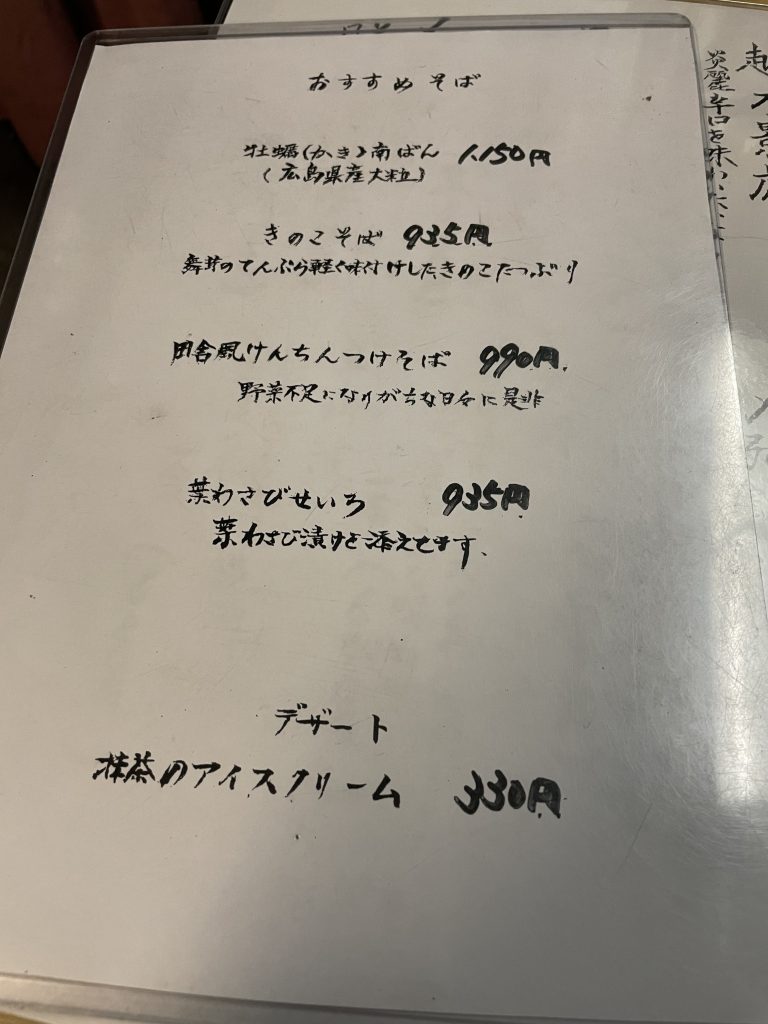 おすすめそば
牡蠣(かき)南ばん 1,150円
(広島県産大粒)
きのこそば 935円
舞茸のてんぷら軽く味付けしたきのこたっぷり
田舎風けんちんつけそば 990円
野菜不足になりがちな日々に是非
葉わさびせいろ 935円
葉わさび漬けを添えてます。
デザート
抹茶のアイスクリーム 330円
淡麗辛口を味わい